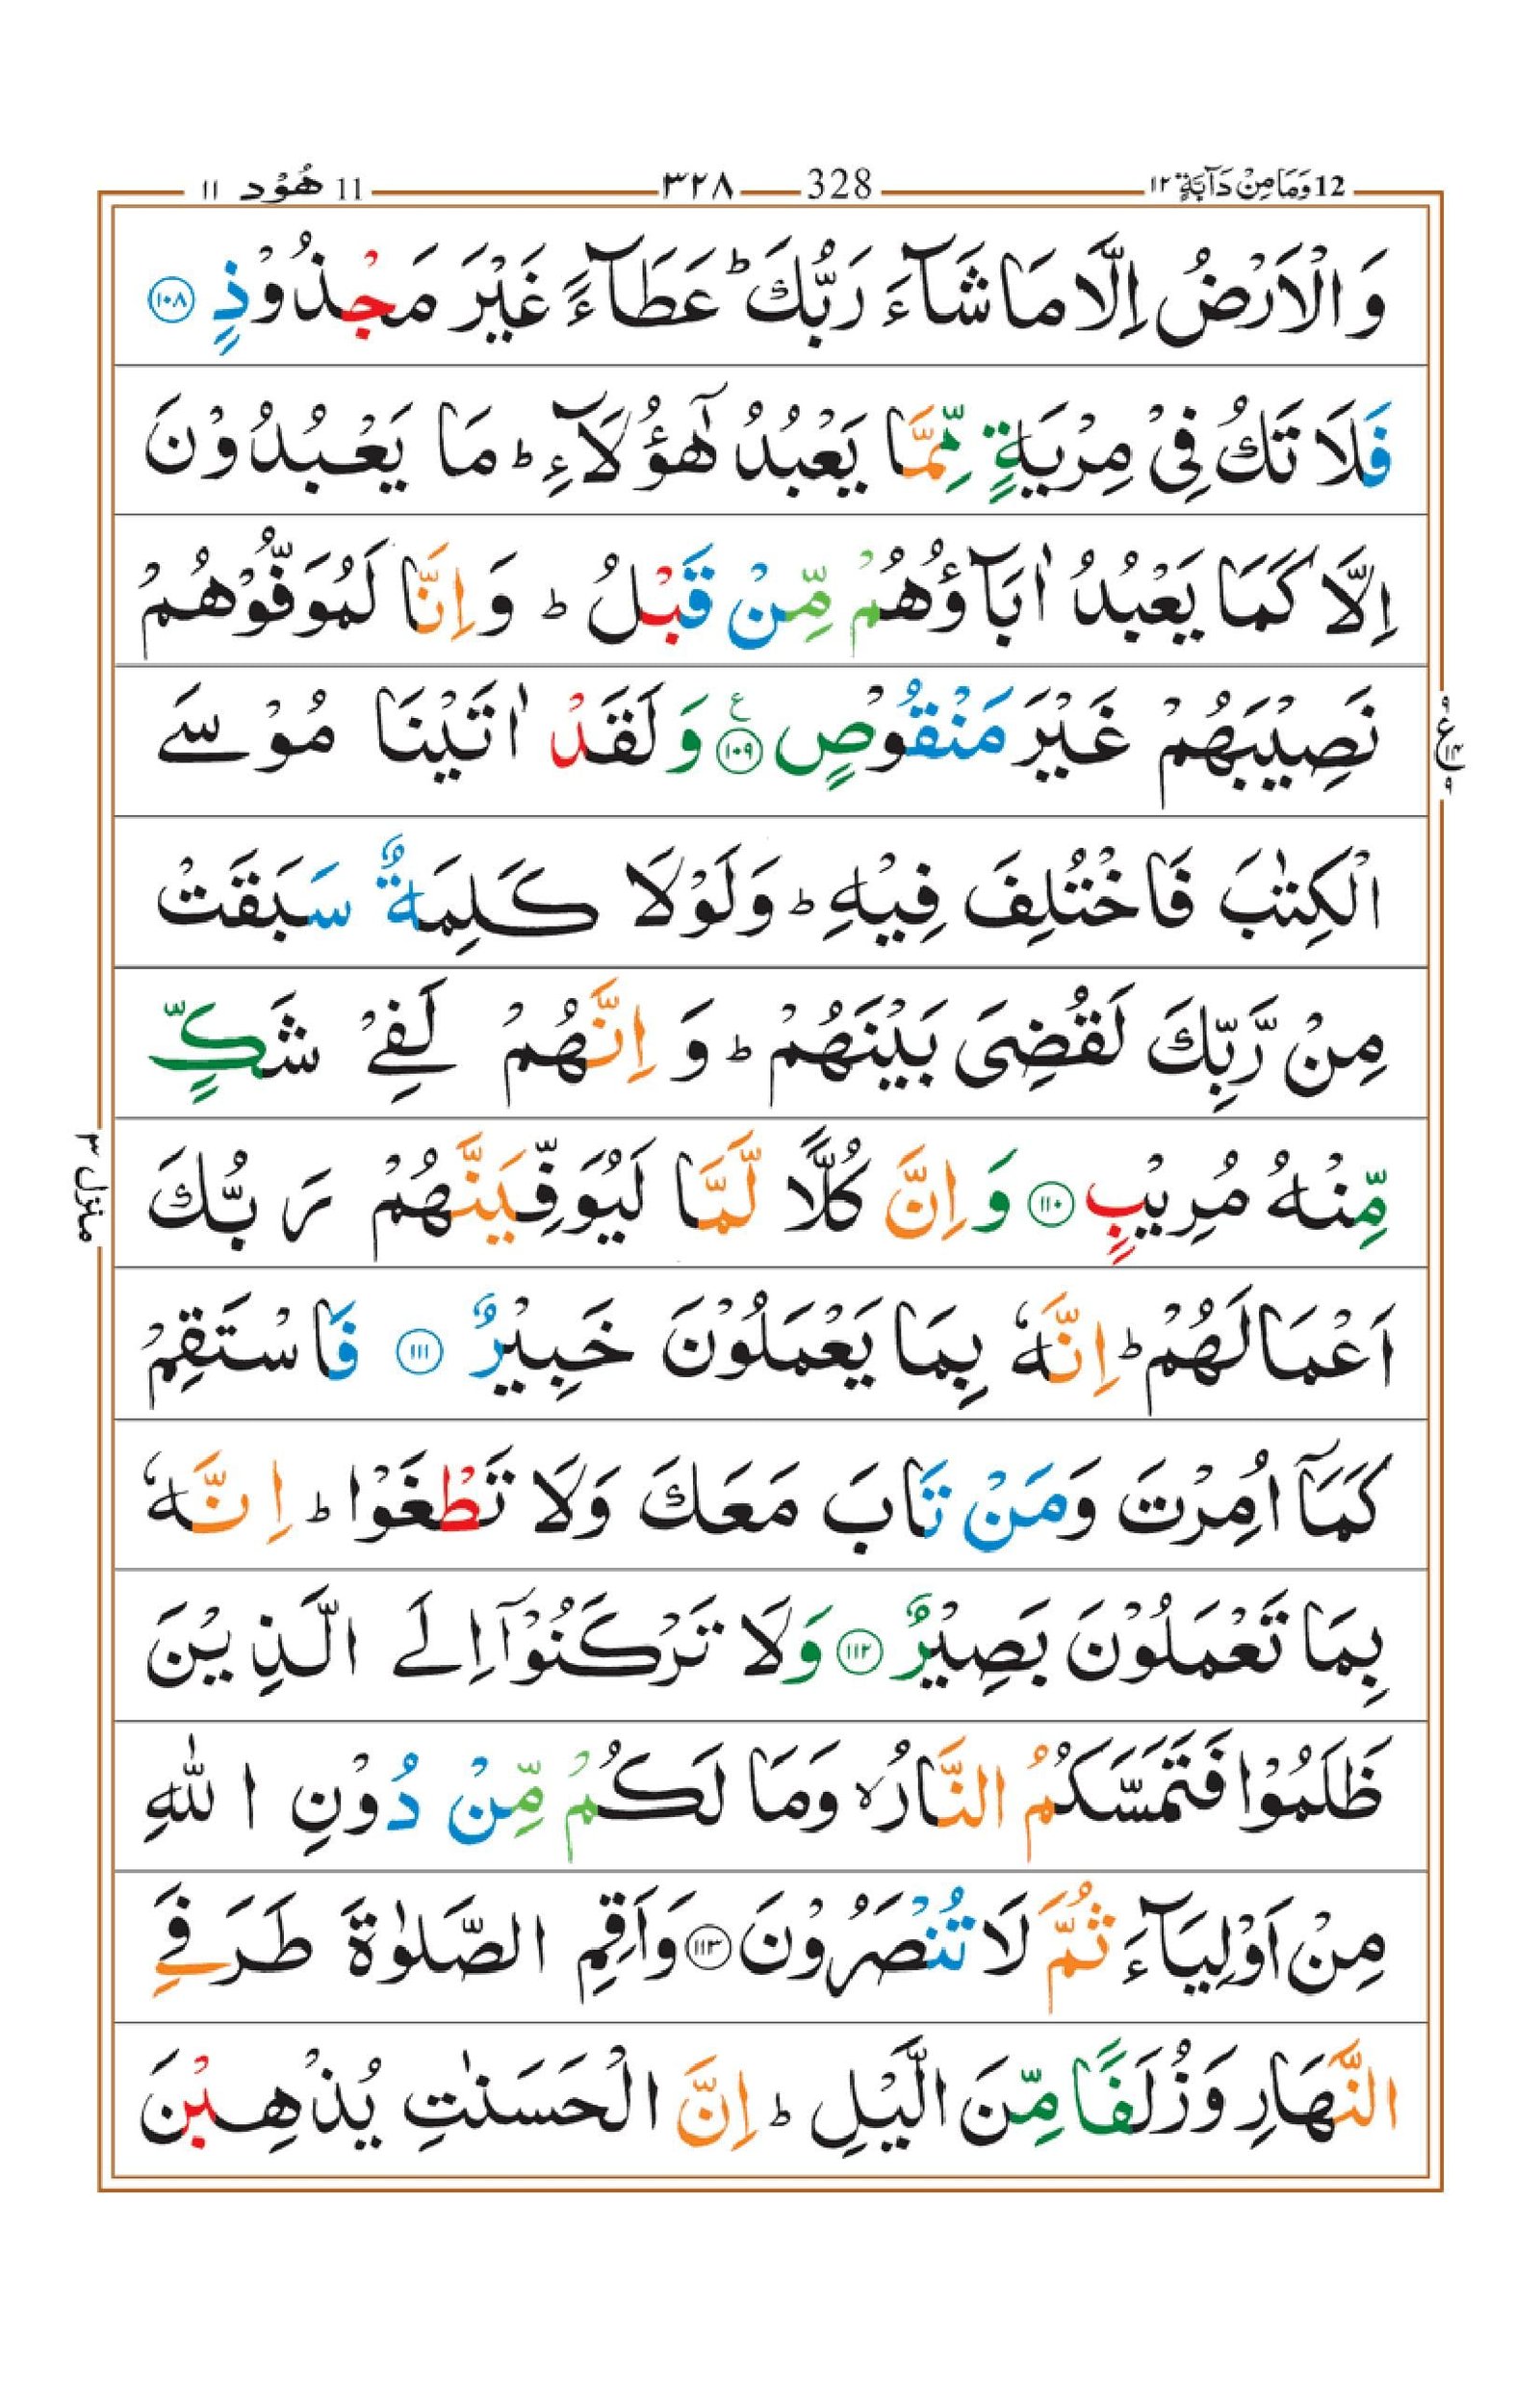 12 وَمَا مِنْ دَآبَّةٍ ١٢
328 ٣٢٨
11 هُوْد ١١
وَالْاَرْضُ اِلَّا مَا شَآءَ رَبُّكَ ؕ عَطَآءً غَيْرَ مَجْذُوْذٍ ١٠٨
فَلَا تَكُ فِىْ مِرْيَةٍ مِّمَّا يَعْبُدُ هٰٓؤُلَآءِ ؕ مَا يَعْبُدُوْنَ
اِلَّا كَمَا يَعْبُدُ اٰبَآؤُهُمْ مِّنْ قَبْلُ ؕ وَاِنَّا لَمُوَفُّوْهُمْ
نَصِيْبَهُمْ غَيْرَ مَنْقُوْصٍ ١٠٩ ع وَلَقَدْ اٰتَيْنَا مُوْسَے
الْكِتٰبَ فَاخْتُلِفَ فِيْهِ ؕ وَلَوْلَا كَلِمَةٌ سَبَقَتْ
مِنْ رَّبِّكَ لَقُضِىَ بَيْنَهُمْ ؕ وَاِنَّهُمْ لَفِےْ شَكٍّ
مِّنْهُ مُرِيْبٍ ١١٠ وَاِنَّ كُلًّا لَّمَّا لَيُوَفِّيَنَّهُمْ رَبُّكَ
اَعْمَالَهُمْ ؕ اِنَّهٗ بِمَا يَعْمَلُوْنَ خَبِيْرٌ ١١١ فَاسْتَقِمْ
كَمَآ اُمِرْتَ وَمَنْ تَابَ مَعَكَ وَلَا تَطْغَوْا ؕ اِنَّهٗ
بِمَا تَعْمَلُوْنَ بَصِيْرٌ ١١٢ وَلَا تَرْكَنُوْٓا اِلَے الَّذِيْنَ
ظَلَمُوْا فَتَمَسَّكُمُ النَّارُ ۙ وَمَا لَكُمْ مِّنْ دُوْنِ اللّٰهِ
مِنْ اَوْلِيَآءَ ثُمَّ لَا تُنْصَرُوْنَ ١١٣ وَاَقِمِ الصَّلٰوةَ طَرَفَےِ
النَّهَارِ وَزُلَفًا مِّنَ الَّيْلِ ؕ اِنَّ الْحَسَنٰتِ يُذْهِبْنَ
منزل ٣